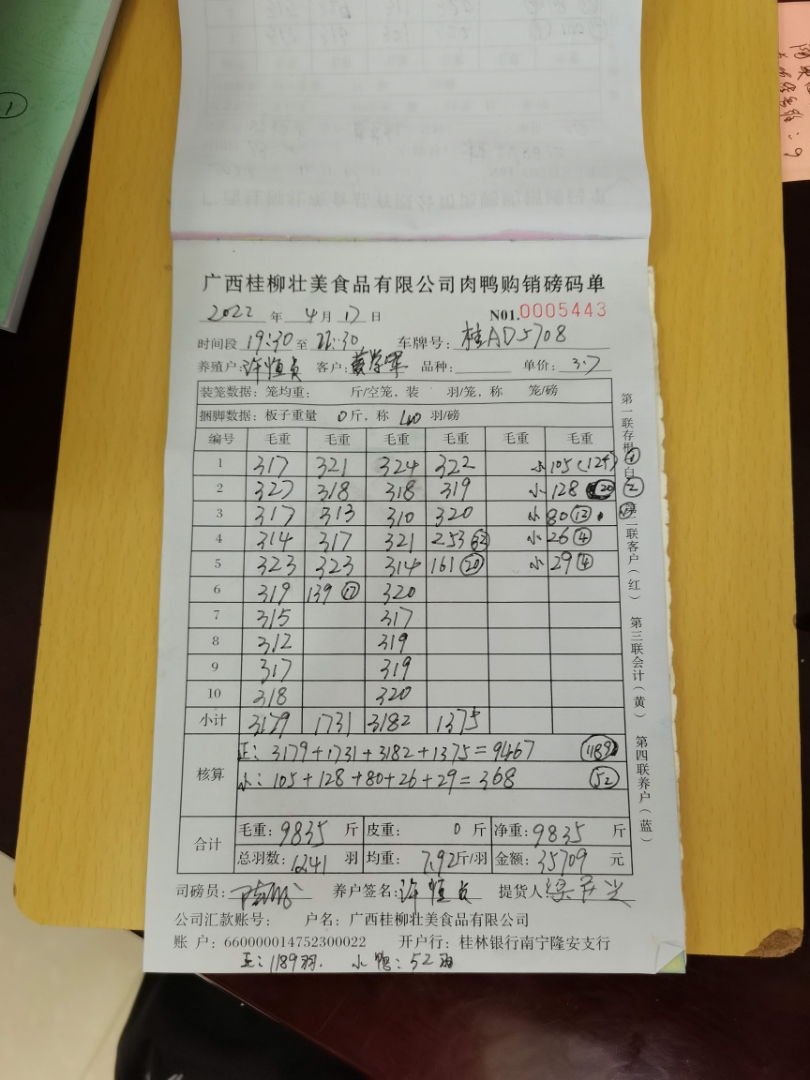 广西桂柳壮美食品有限公司肉鸭购销磅码单
2022 年 4 月 17 日 N01.0005443
时间段 19:30 至 22:30 车牌号: 桂AD5708
养殖户: 许恒贞 客户: 品种: 单价: 3.7
装笼数据: 笼均重: 斤/空笼, 装 羽/笼, 称 笼/磅
捆脚数据: 板子重量 0斤, 称 40 羽/磅
编号 毛重 毛重 毛重 毛重 毛重 毛重
1 317 321 324 322 小 105
2 327 318 318 319 小 128 ⑳ ②
3 317 313 310 320 小 80 ⑫
4 314 317 321 253 小 26 ④
5 323 323 314 161 ⑳ 小 29 ④
6 319 139 ⑰ 320
7 315 317
8 312 319
9 317 319
10 318 320
小计 3179 1731 3182 1375
核算
正: 3179+1731+3182+1375=9467 1189
小: 105+128+80+26+29=368 52
合计
毛重: 9835 斤 皮重: 0 斤 净重: 9835 斤
总羽数: 1241 羽 均重: 7.92斤/羽 金额: 35709 元
司磅员: 养户签名: 许恒贞 提货人:
公司汇款账号: 户名: 广西桂柳壮美食品有限公司
账 户: 660000014752300022 开户行: 桂林银行南宁隆安支行
正: 1189羽. 小鸭: 52羽
第一联存根(白) 第二联客户(红) 第三联会计(黄) 第四联养户(蓝)
①